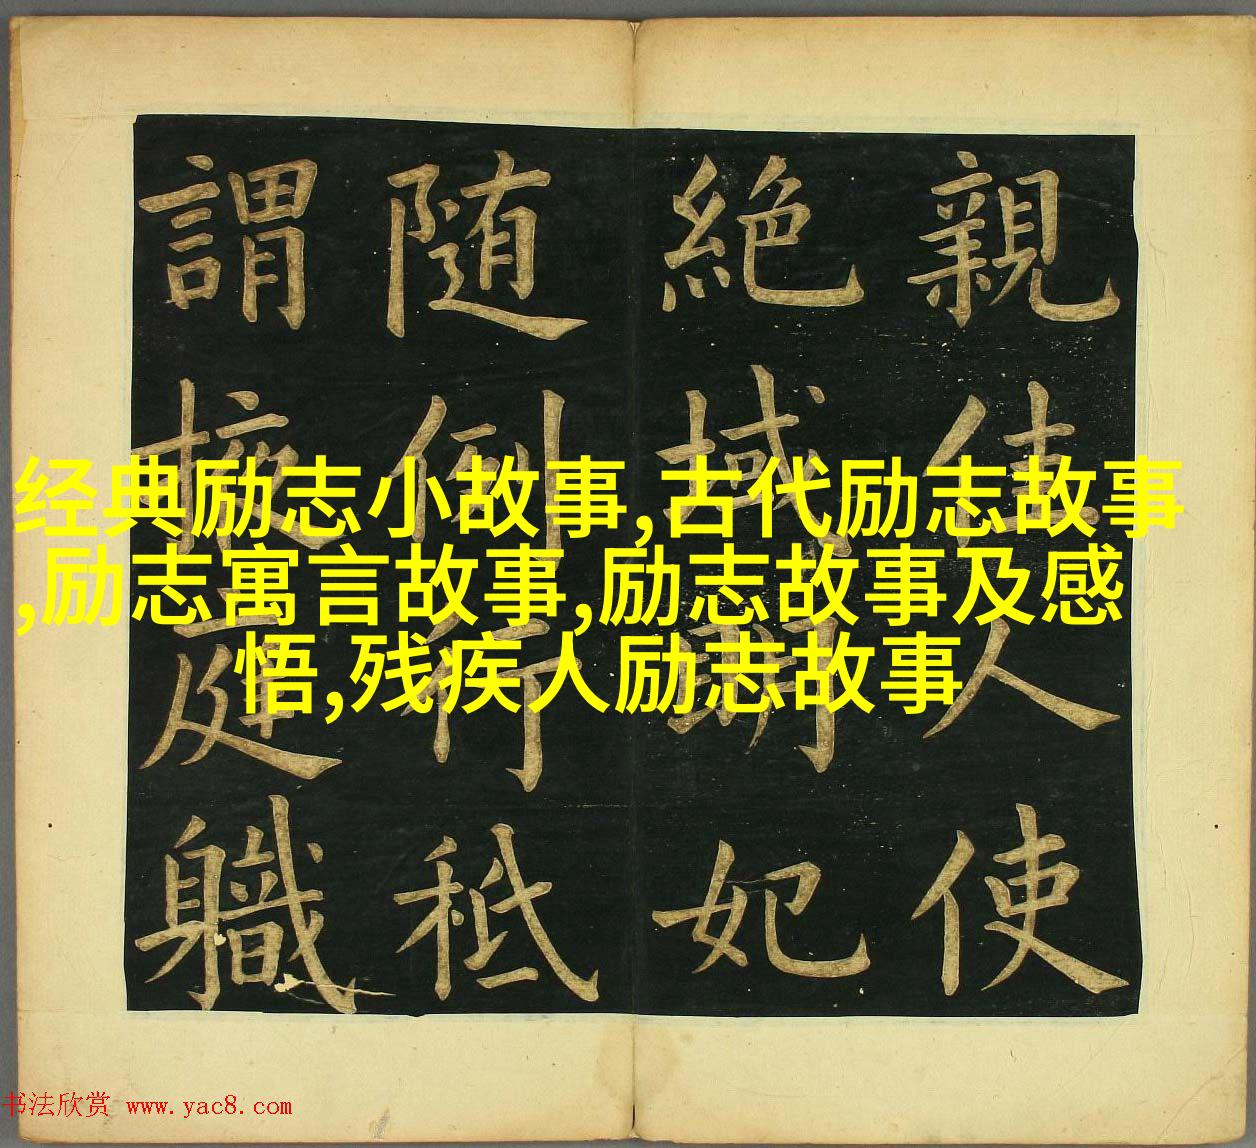 親使人使
絶域
妃
随例行秖
謂掖庭職
经典励志小故事,古代励志故事
,励志寓言故事,励志故事及感
悟,残疾人励志故事
书法欣赏 www.yac8.com